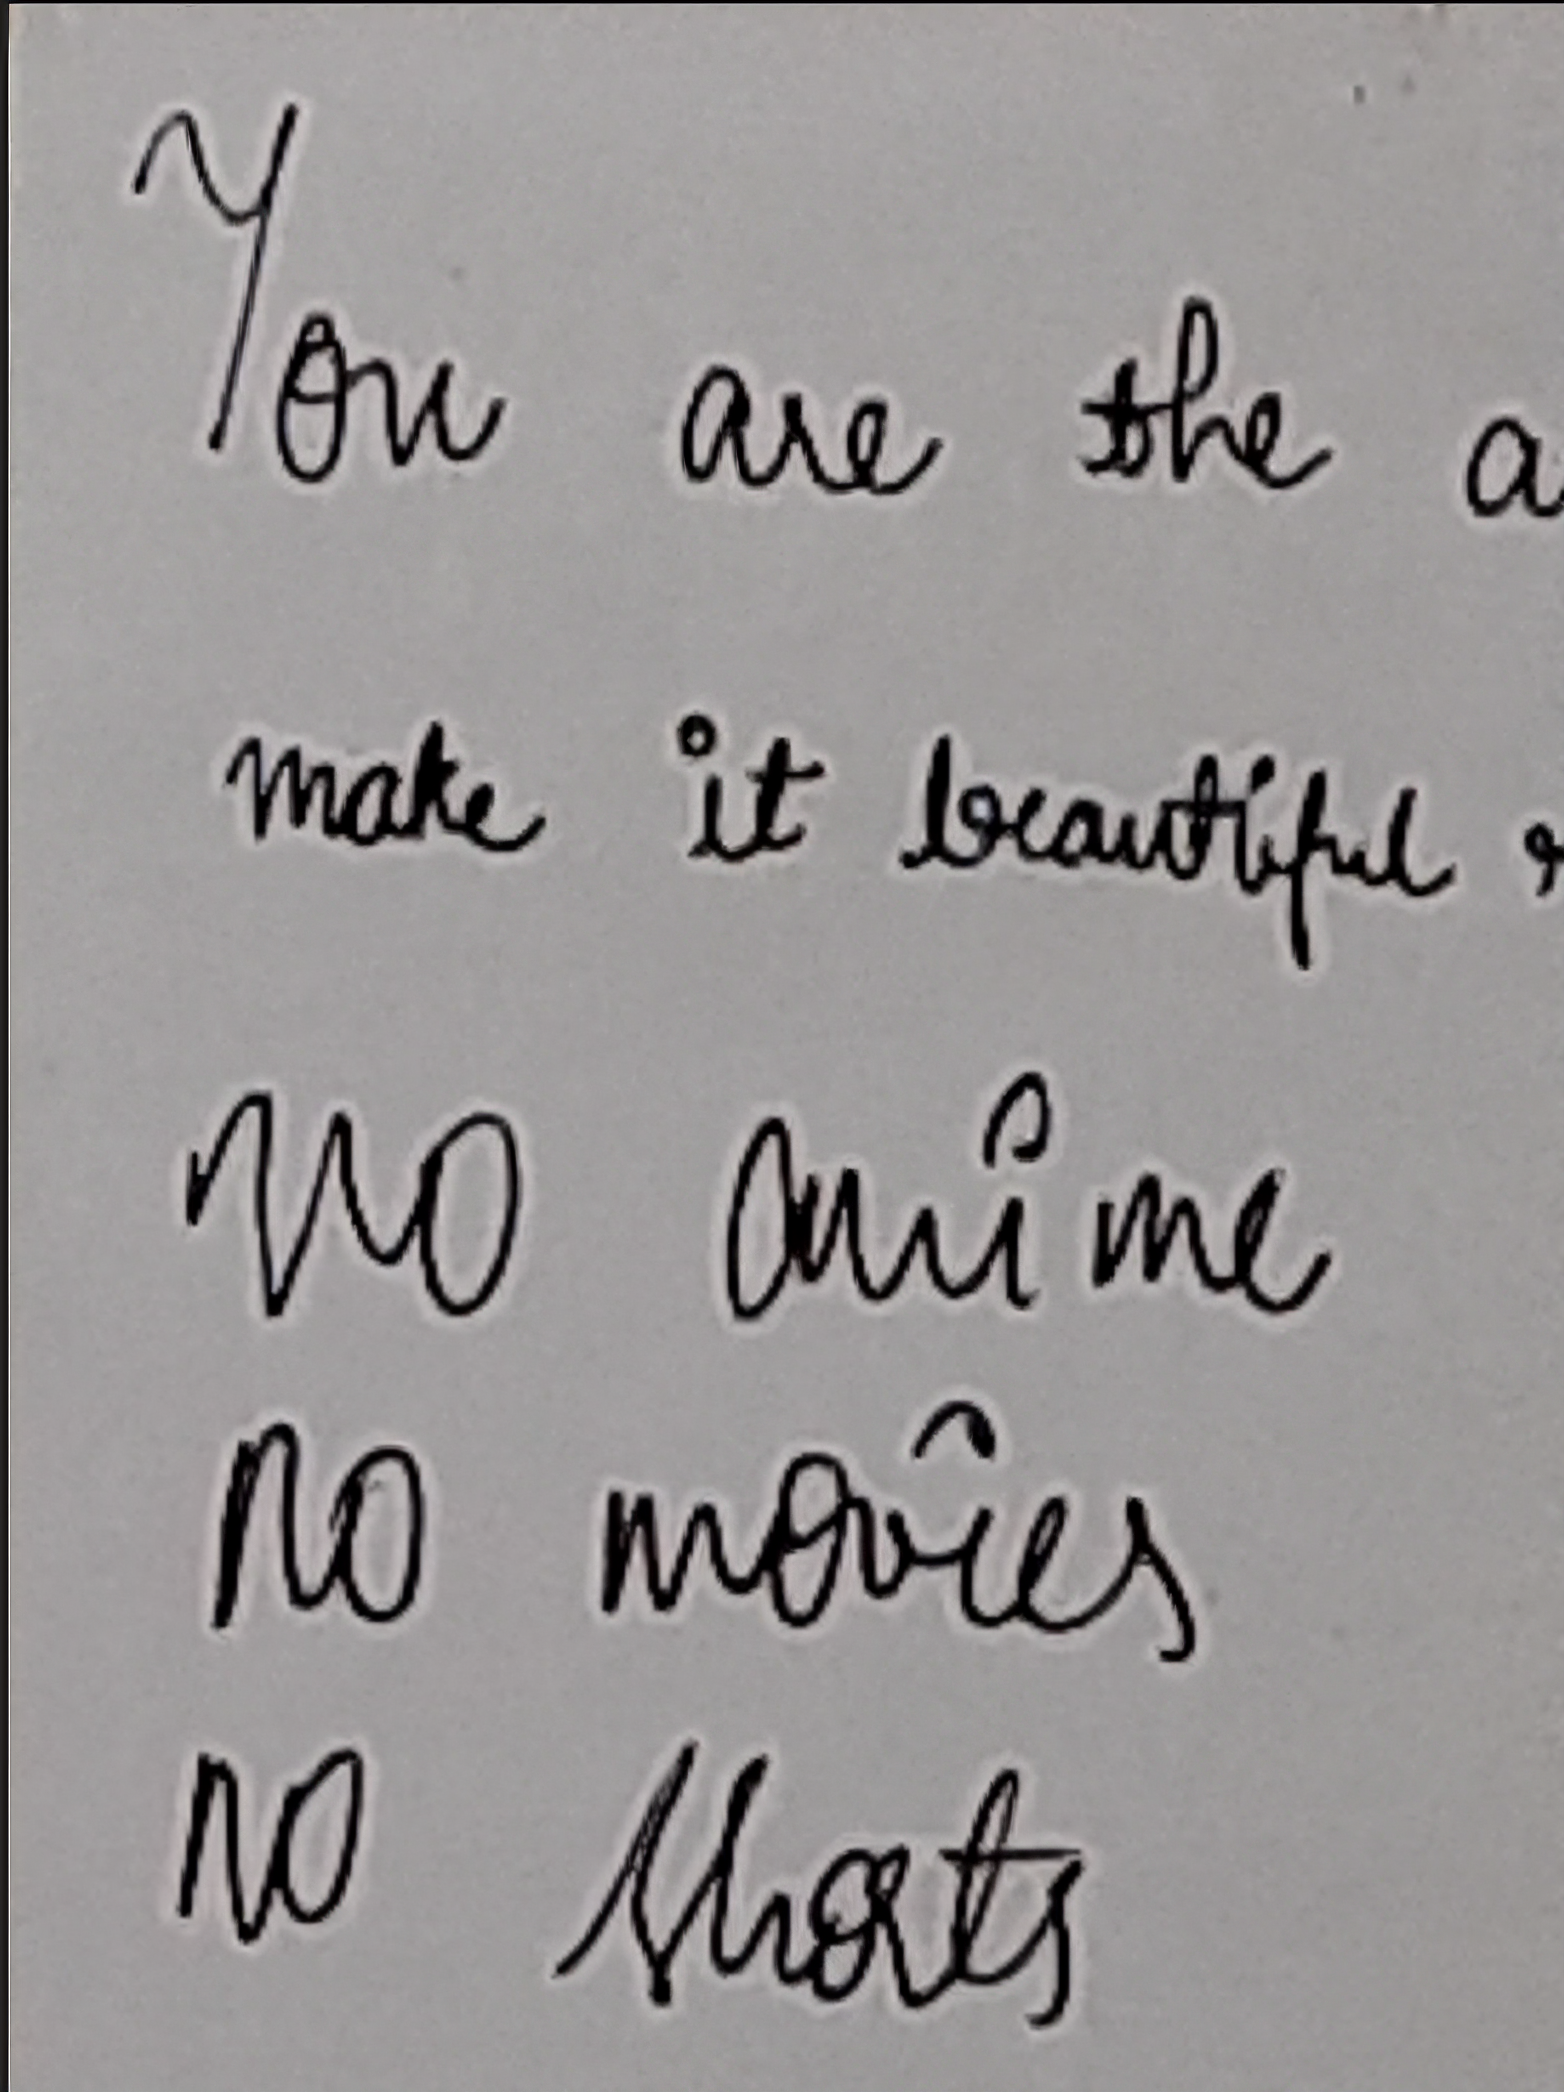 You are the a
make it beautiful
No anime
No movies
No shorts